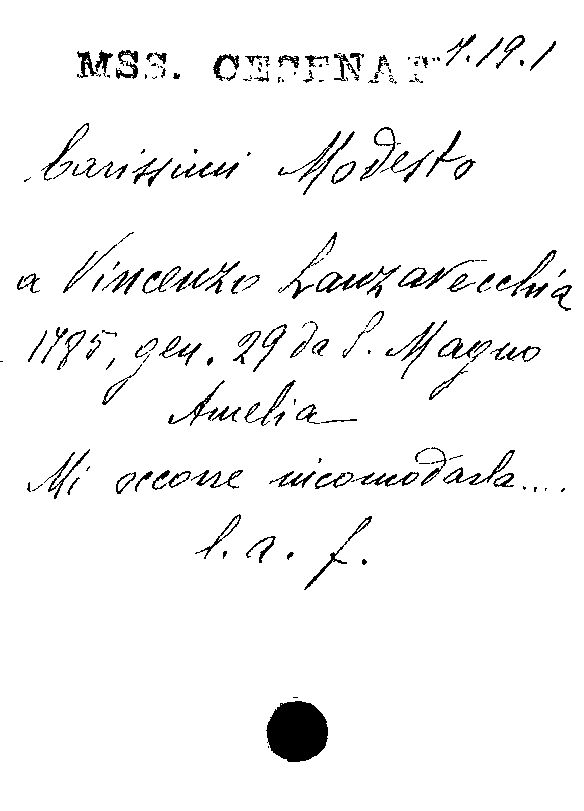 MSS. CESENAT 7.19.1
Carissimi Modesto
a Vincenzo Lanzavecchia
1785, gen. 29 da S. Magno
Amelia
Mi occorre incomodarla....
l. a. f.